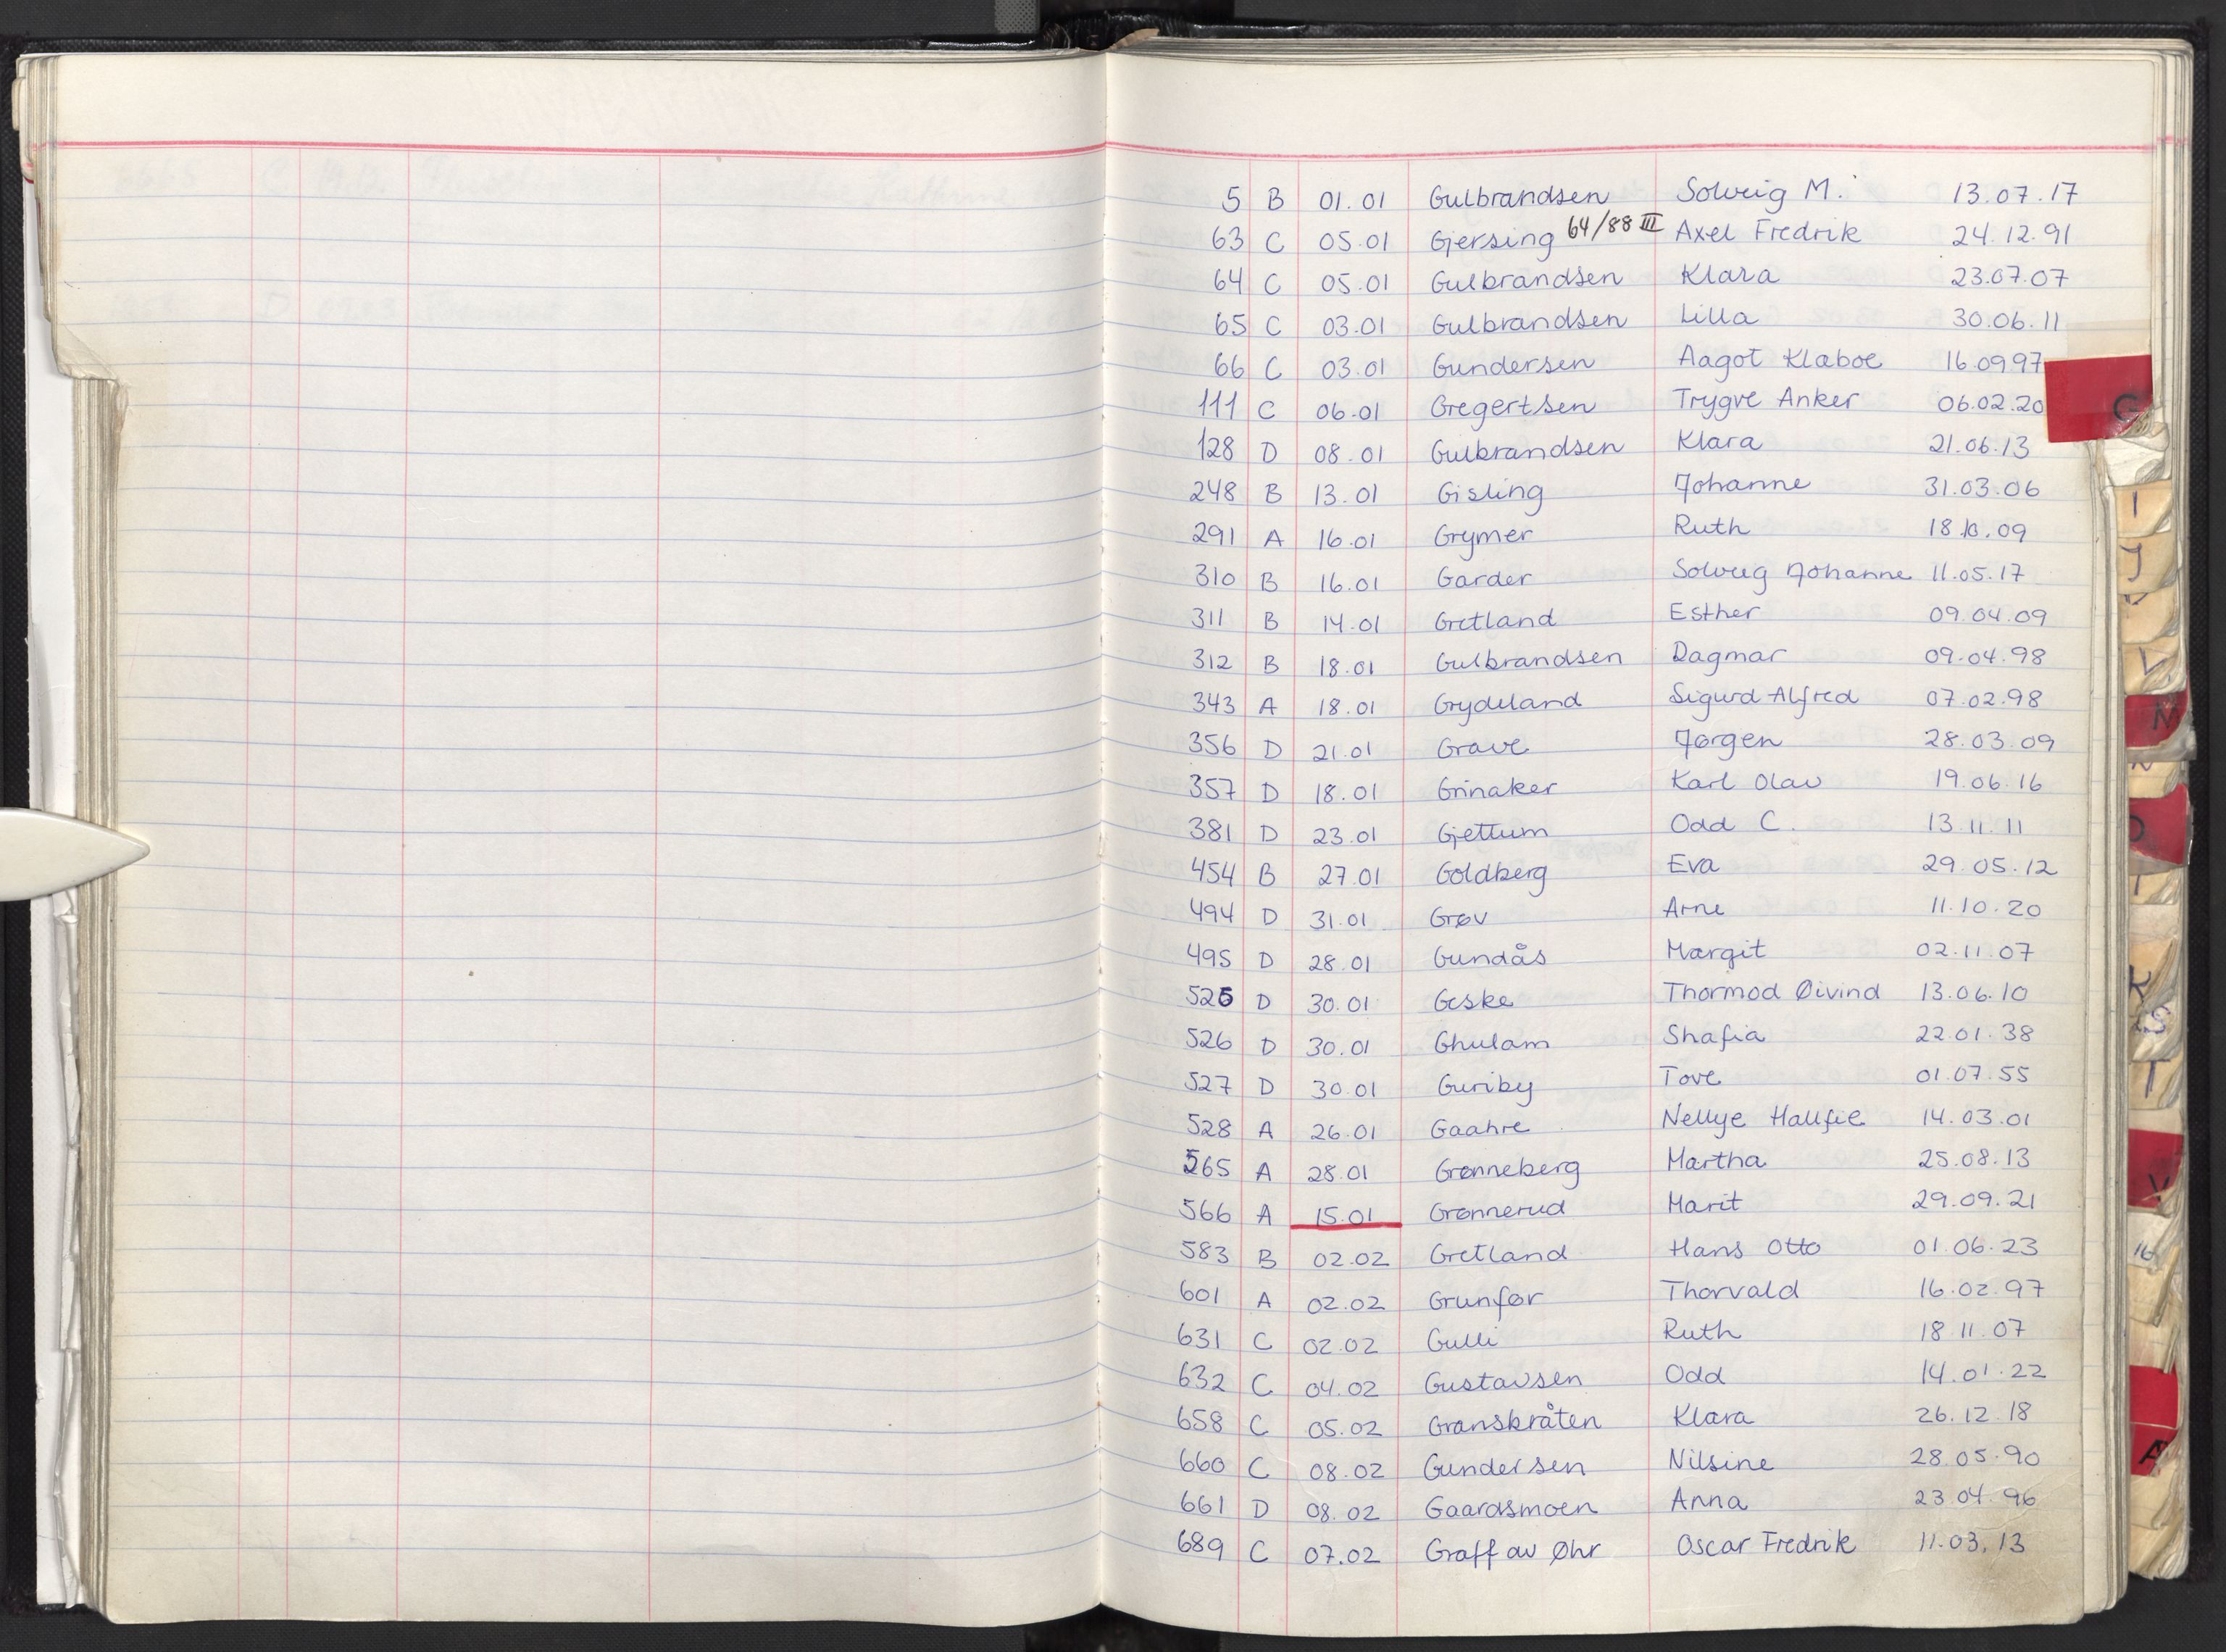 5 B 01.01 Gulbrandsen Solveig M. 13.07.17
63 C 05.01 Gjersing 64/88 III Axel Fredrik 24.12.91
64 C 05.01 Gulbrandsen Klara 23.07.07
65 C 03.01 Gulbrandsen Lilla 30.06.11
66 C 03.01 Gundersen Aagot Klaboe 16.09 97
111 C 06.01 Gregertsen Trygve Anker 06.02.20
G
128 D 08.01 Gulbrandsen Klara 21.06.13
248 B 13.01 Gisling Johanne 31.03.06
291 A 16.01 Grymer Ruth 18.10.09
310 B 16.01 Garder Solveig Johanne 11.05.17
311 B 14.01 Gretland Esther 09.04.09
312 B 18.01 Gulbrandsen Dagmar 09.04.98
343 A 18.01 Grydeland Sigurd Alfred 07.02.98
356 D 21.01 Grave Jørgen 28.03.09
357 D 18.01 Grinaker Karl Olav 19.06.16
381 D 23.01 Gjettum Odd C. 13.11.11
454 B 27.01 Goldberg Eva 29.05.12
494 D 31.01 Grøv Arne 11.10.20
495 D 28.01 Gundås Margit 02.11.07
525 D 30.01 Geske Thormod Øivind 13.06.10
526 D 30.01 Ghulam Shafia 22.01.38
527 D 30.01 Guriby Tove 01.07.55
528 A 26.01 Gaahre Nellye Hallfie 14.03.01
565 A 28.01 Grønneberg Martha 25.08.13
566 A 15.01 Grønnerud Marit 29.09.21
583 B 02.02 Gretland Hans Otto 01.06.23
601 A 02.02 Grunfør Thorvald 16.02.97
631 C 02.02 Gulli Ruth 18 11.07
632 C 04.02 Gustavsen Odd 14.01.22
658 C 05.02 Granskråten Klara 26.12.18
660 C 08.02 Gundersen Nilsine 28.05.90
661 D 08.02 Gaardsmoen Anna 23.04.96
689 C 07.02 Graff av Øhr Oscar Fredrik 11.03.13
I
J
M
K
S
T
V